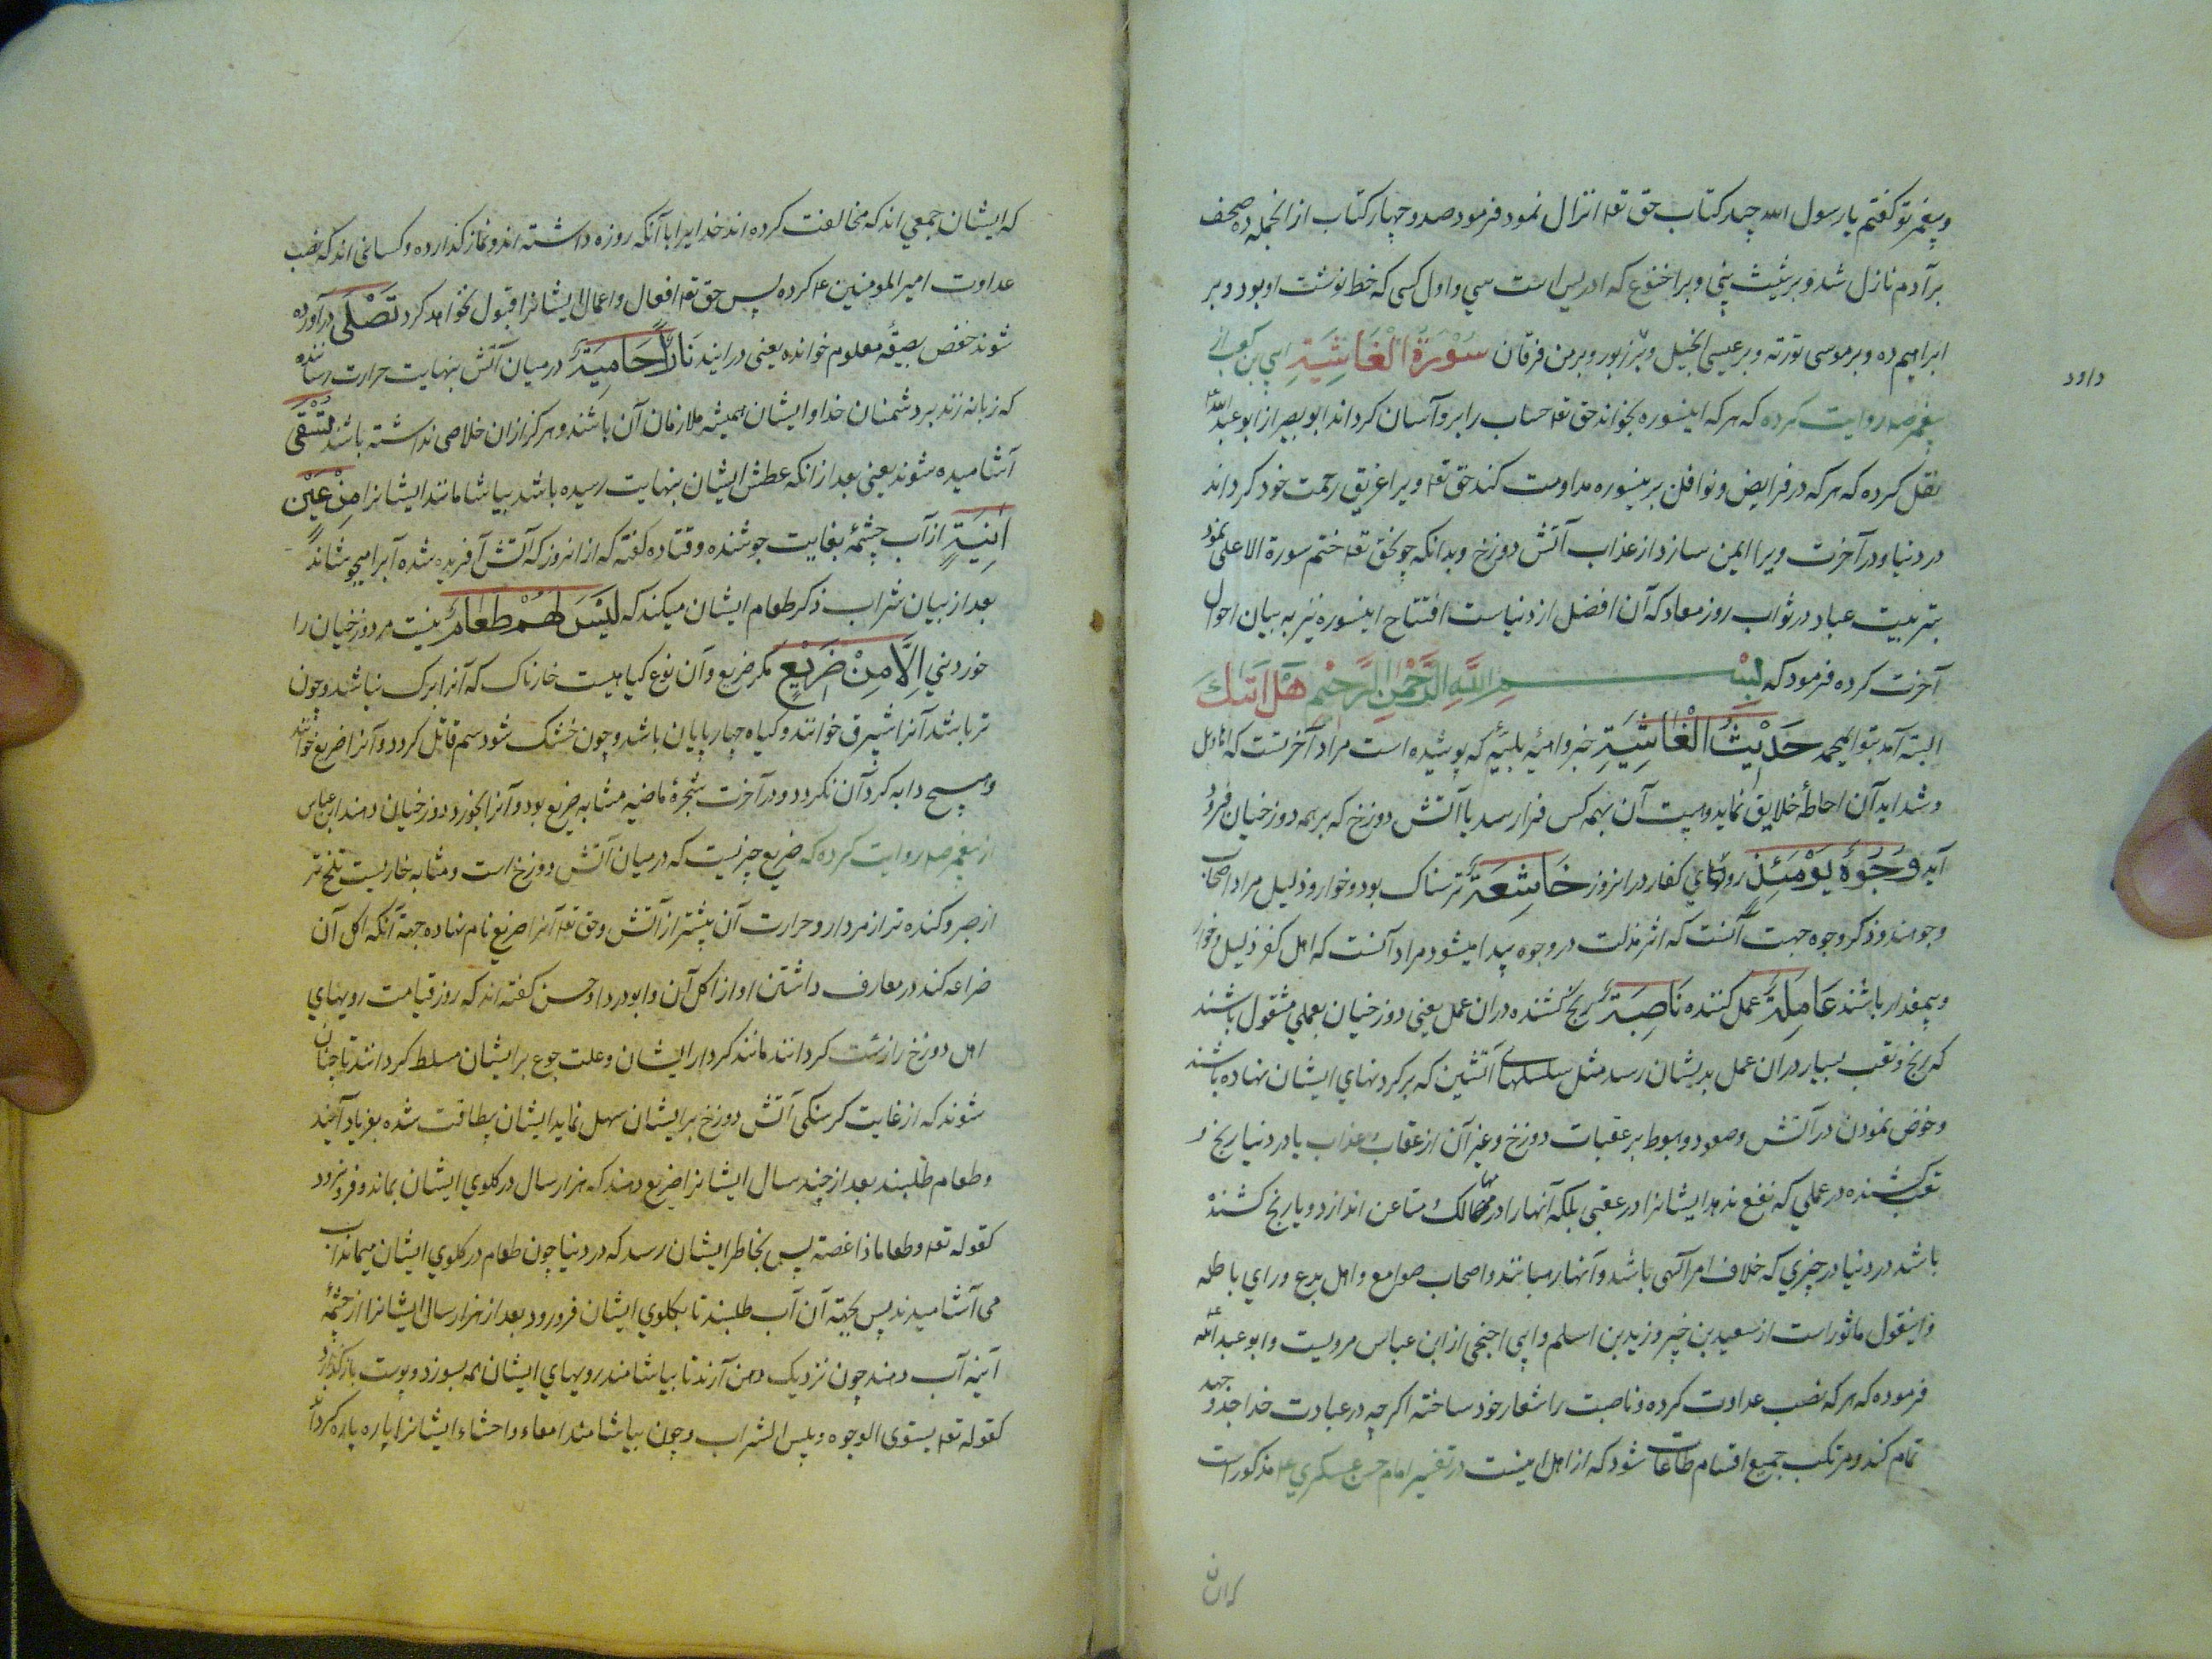 و پیغمبر تو گفتم یا رسول الله چند کتاب حق تعه انزال نمود فرمود صد و چهار کتاب از انجمله ده صحف
بر آدم نازل شد و بر شیث پنجاه و بر اخنوع که ادریس است سی و اول کسی که خط نوشت او بود و بر
ابراهیم ده و بر موسی توریة و بر عیسی انجیل و بر زبور و بر من فرقان سُوْرَةُ الْغَاشِيَةِ ابی بن کعب از
داود
پیغمبر صه روایت کرده که هر که اینسوره بخواند حق تعه حساب را بر و آسان کرداند ابو بصیر از ابو عبدالله ع
نقل کرده که هر که در فرایض و نوافل بر ینسوره مداومت کند حق تعه ویرا غریق رحمت خود کرداند
در دنیا و در آخرت ویرا ایمن سازد از عذاب آتش دوزخ و بدانکه چونحق تعه ختم سورة الاعلی نمود
بترتیب عباد در ثواب روز معاد که آن افضل از دنیاست افتتاح اینسوره نیز به بیان احوال
آخرت کرده فرمود که بِسْمِ اللَّهِ الرَّحْمنِ الرَّحِیْمِ هَلْ اَتیكَ
البته آمد بتو ایمحمد حَدِیْثُ الْغَاشِیَةِ خبر واهیهٔ بلیهٔ که پوشیده است مراد آخرتست که اهوال
و شداید آن احاطهٔ خلایق نماید و هیبت آن بهمه کس فرا رسد یا آتش دوزخ که بر همه دوزخیان فرو
آید وُجُوْهٌ یَوْمَئِذٍ رویهای کفار در انروز خَاشِعَةٌ ترسناک بود و خوار و ذلیل مراد اصحاب
وجوهند و ذکر وجوه جهت آنست که اثر مذلت در وجوه پیدا میشود مراد آنست که اهل کفر ذلیل و خوار
و بیمقدار باشند عَامِلَةٌ عمل کننده نَاصِبَةٌ رنج کشنده در ان عمل یعنی دوزخیان بعملی مشغول باشند
که رنج و تعب بسیار دران عمل بدیشان رسد مثل سلسلهای آتشین که بر کردنهای ایشان نهاده باشند
و خوض نمودن در آتش و صعود و هبوط بر عقبات دوزخ و غیر آن از عقاب و عذاب یا در دنیا رنج و
تعب کشنده در عملی که نفع ندهد ایشانرا در عقبی بلکه آنها را در مهالک متاعن اندازد و یا رنج کشنده
باشد در دنیا در چیزی که خلاف امر آلهی باشد و آنها رهبانند و اصحاب صوامع و اهل بدع و رای باطله
و اینقول ماثور است از سعید بن جبیر و زید بن اسلم و ابی از ابن عباس مرویست و ابو عبدالله ع
فرموده که هر که نصب عداوت کرده و ناصبت را شعار خود ساخته اکر چه در عبادت خدا جد و جهد
تمام کند و مرتکب جمیع اقسام طاعات شود که از اهل اینست در تفسیر امام حسن عسکری ع مذکور است
که ایشان جمعی اند که مخالفت کرده اند خدایرا با آنکه روزه داشته اند و نماز کذارده و کسانی اند که نصب
عداوت امیر المومنین ع کرده پس حق تعه افعال و اعمال ایشانرا قبول نخواهد کرد تَصْلَی در آورده
شوند حفص بصیغهٔ معلوم خوانده یعنی در ایند نَارًا حَامِیَةً در میان آتش بنهایت حرارت رسانیده
که زبانه زند بر دشمنان خدا و ایشان همیشه ملازمان آن باشند و هرکز ازان خلاصی نداشته باشند تُسْقَی
آشامیده شوند یعنی بعد از انکه عطش ایشان بنهایت رسیده باشد بیاشامانند ایشانرا مِنْ عَیْنٍ
اٰنِیَةٍ از آب چشمهٔ بغایت جوشنده و قتاده کفته که از انروز که آتش آفریده شده آبرا میجوشاند
بعد از بیان شراب ذکر طعام ایشان میکند که لَیْسَ لَهُمْ طَعَامٌ نیست مر دوزخیان را
خوردنی اِلَّا مِنْ ضَرِیْعٍ مکر ضریع و آن نوع کیاهیست خارناک که آنرا برک نباشد و چون
تر باشد آنرا شبرق خوانند و کیاه چارپایان باشد و چون خشک شود سم قاتل کردد و آنرا ضریع خوانند
و هیچ دابه کرد آن نکردد و در آخرت شجرهٔ ماضیه مشابه ضریع بود و آنرا بخورد دوزخیان دهند ابن عباس
از پیغمبر صه روایت کرده که ضریع چیزیست که در میان آتش دوزخ است و مشابه خاریست تلخ تر
از صبر و کنده تر از مردار و حرارت آن بیشتر از آتش و حق تعه آنرا ضریع نام نهاده جهة آنکه اکل آن
ضراعه کند در معارف داشتن او از اکل آن و ابو دردا و حسن کفته اند که روز قیامت رویهای
اهل دوزخ را زشت کردانند مانند کردار ایشان و علت جوع بر ایشان مسلط کردانند تا چنان
شوند که از غایت کرسنکی آتش دوزخ بر ایشان سهل نماید ایشان بیطاقت شده بفریاد آیند
و طعام طلبند بعد از چند سال ایشانرا ضریع دهند که هزار سال در کلوی ایشان بماند و فرو نرود
کقوله تعه و طعاما ذا غصة پس بخاطر ایشان رسد که در دنیا چون طعام در کلوی ایشان میماند آب
می آشامیدند پس بجهة آن آب طلبند تا بکلوی ایشان فرو رود بعد از هزار سال ایشانرا از چشمهٔ
آنیه آب دهند چون نزدیک دهن آرند تا بیاشامند رویهای ایشان همه بسوزد و پوست باز کذارد
کقوله تعه یشوی الوجوه و بئس الشراب و چون بیاشامند امعاء و احشاء ایشانرا پاره پاره کرداند